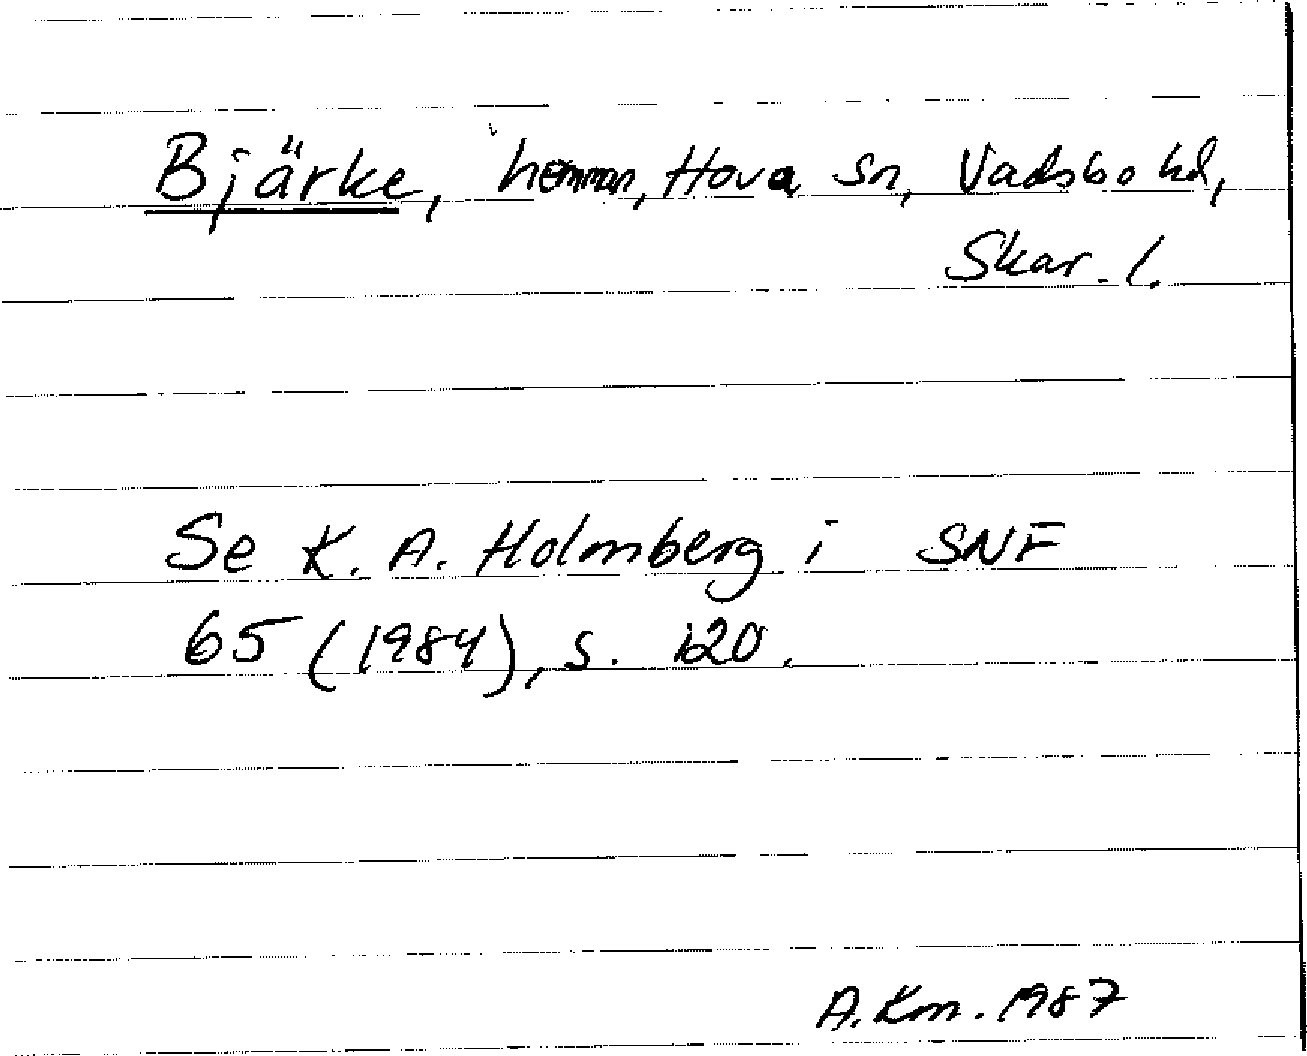 Bjärke, hemman, Hova sn, Vadsbo hd,
Skar. l.
Se K. A. Holmberg i SNF
65 (1984), s. 120.
A. Km. 1987